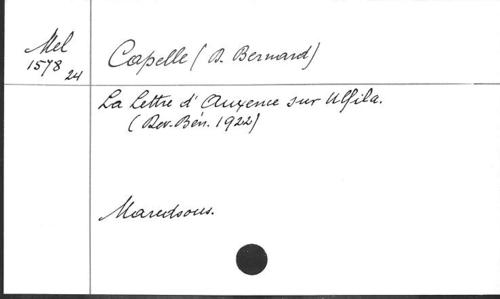 Mel
1578
24
Capelle (D. Bernard)
La Lettre d'Auxence sur Ulfila.
(Rev. Bén. 1922)
Maredsous.